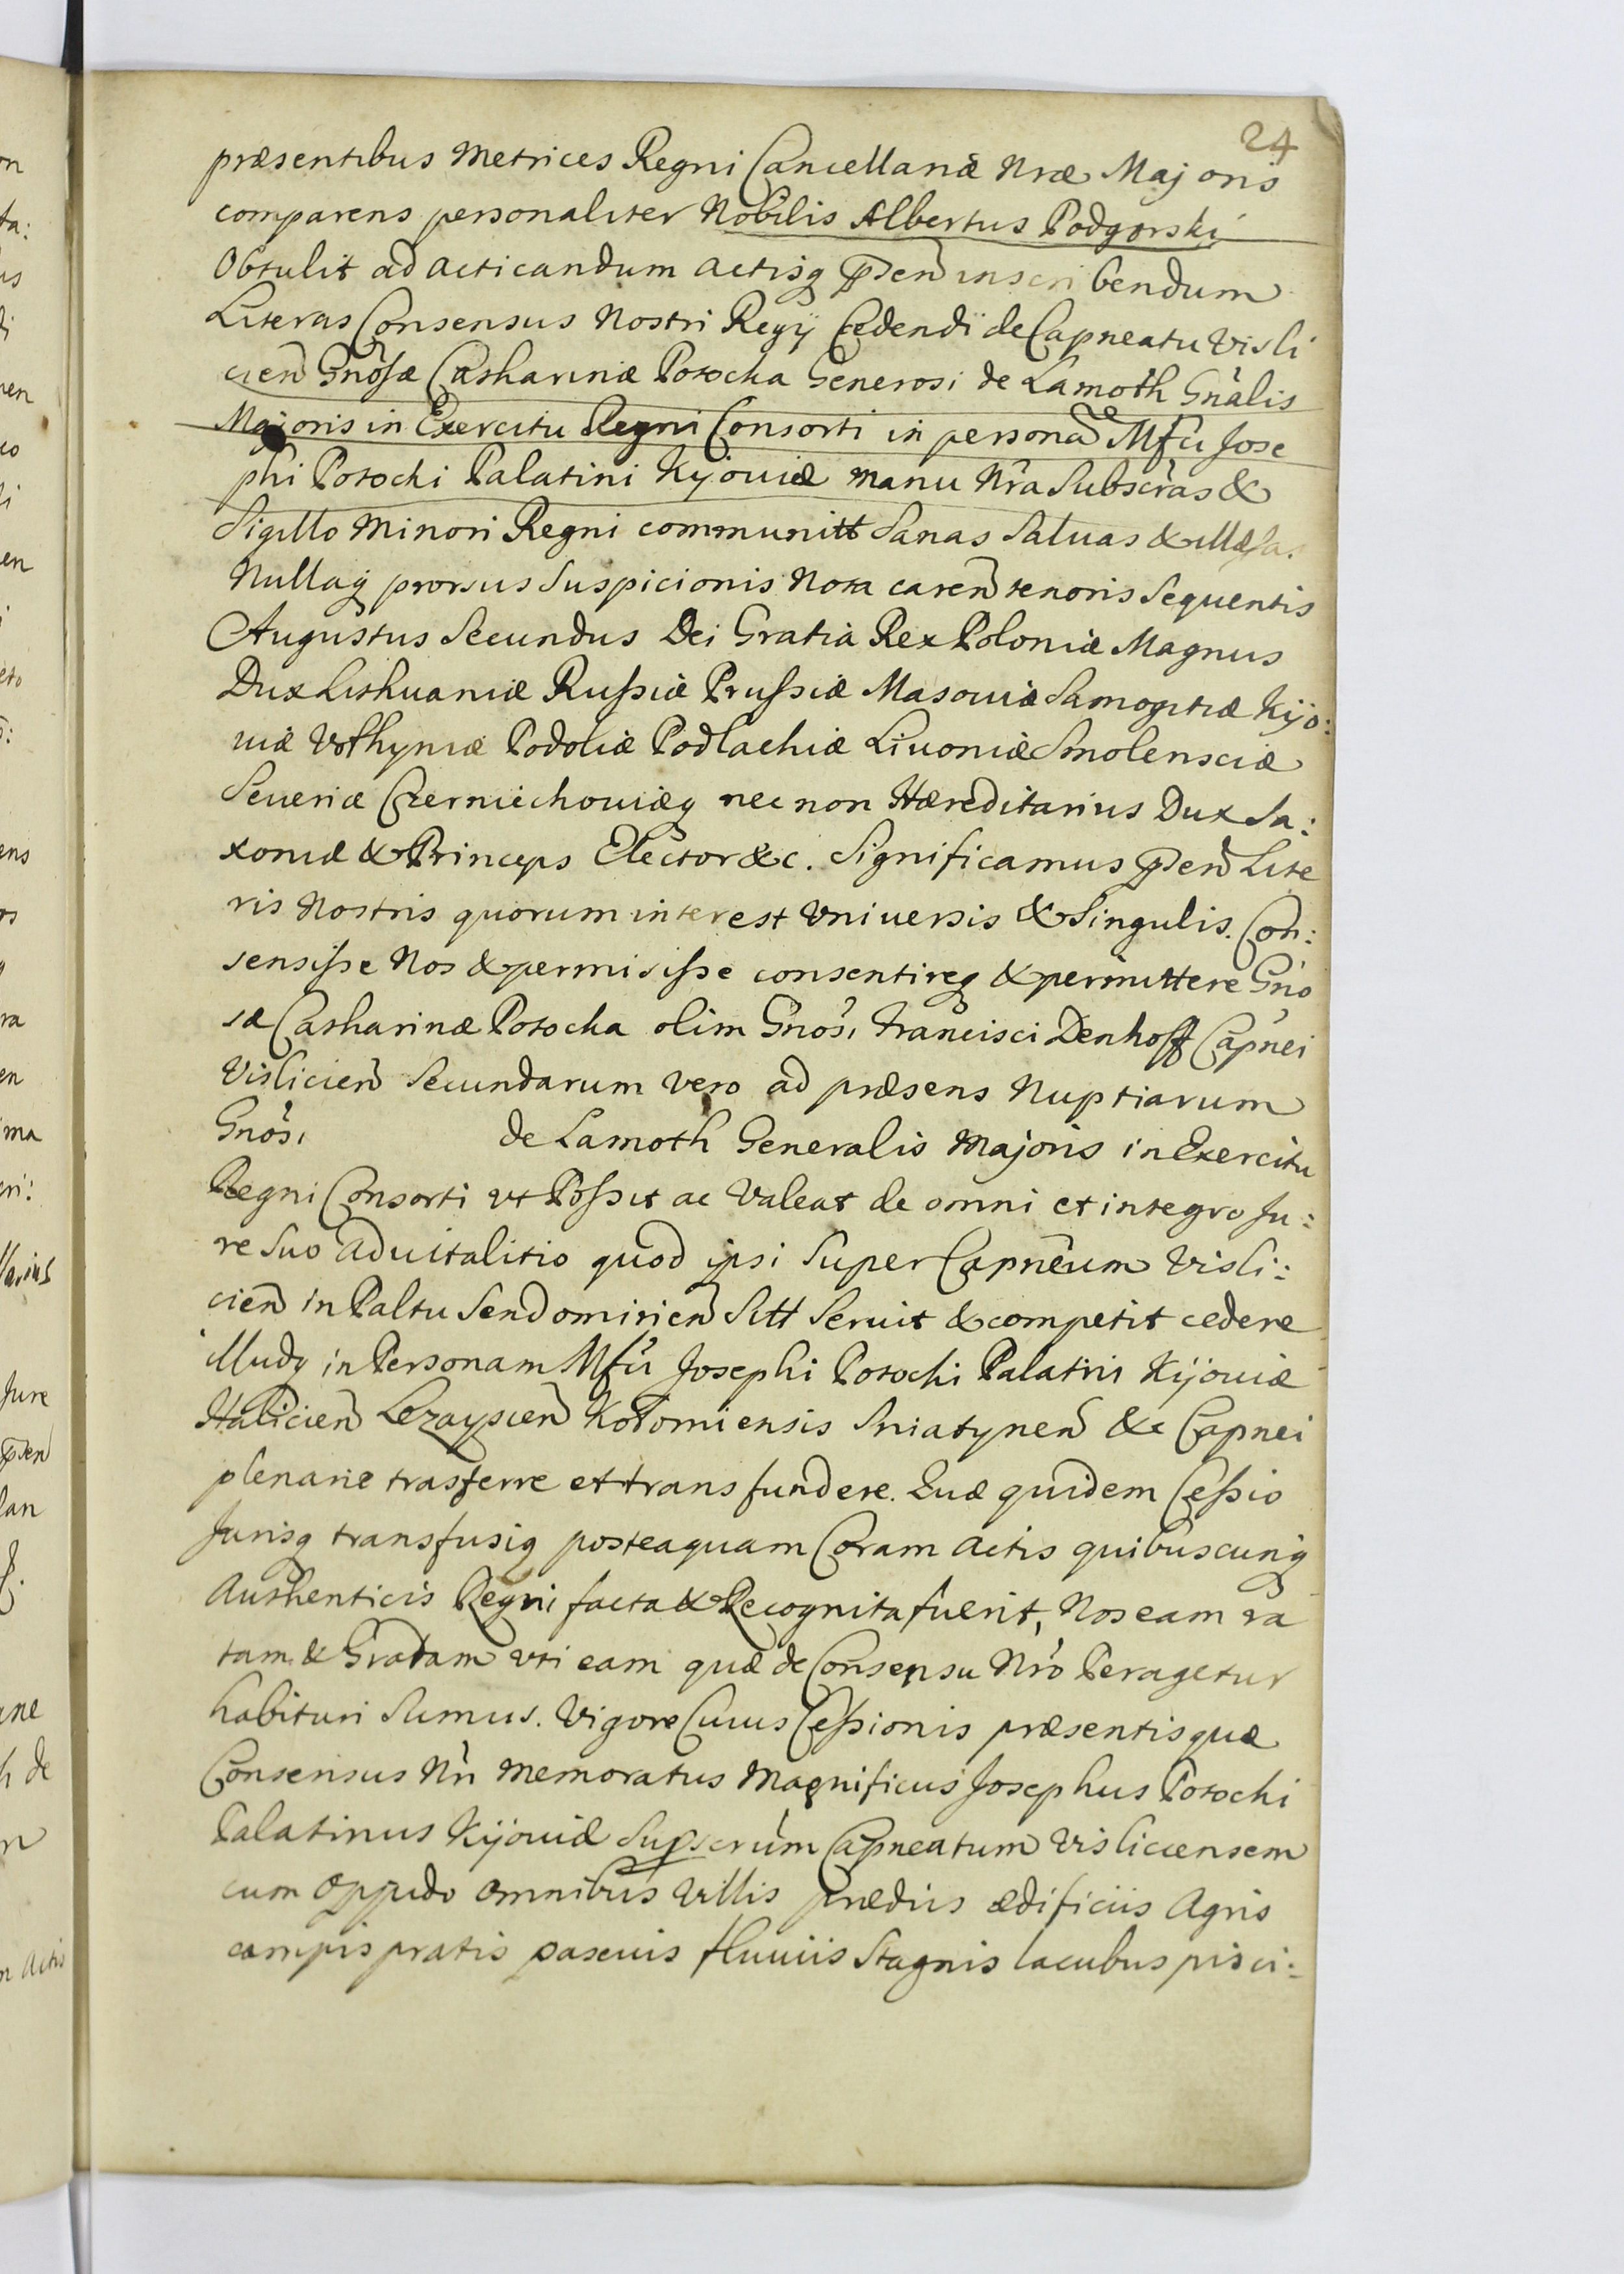 24
præsentibus Metrices Regni Cancellariæ Nræ Majoris
comparens personaliter Nobilis Albertus Podgorski
Obtulit ad acticandum actisq pñsen inscribendum
Literas Consensus Nostri Regÿ Cedendi de Capneatu Visli
cien Gnosæ Catharinæ Potocka Generosi de Lamoth Gnalis
Majoris in Exercitu Regni Consorti in personã Mfci Jose
phi Potocki Palatini Kyjouiæ manu Nra Subscras &
Sigillo Minori Regni communitt Sanas Saluas & illæsas
Nullaq prorsus Suspicionis Nota caren tenoris Sequentis
Augustus Secundus Dei Gratia Rex Poloniæ Magnus
Dux Lithuaniæ Russiæ Prussiæ Masouiæ Samogitiæ Kijo:
uiæ Volhyniæ Podoliæ Podlachiæ Liuoniæ Smolensciæ
Seueriæ Czerniechouiæq nec non Hæreditarius Dux Sa:
xoniæ & Princeps Elector &c. Significamus pñsen Lite
ris Nostris quorum interest Vniuersis & Singulis. Con:
sensisse Nos & permisisse consentireq & permittere Gno
sæ Catharinæ Potocka olim Gnosi Francisci Denhoff Capnei
Vislicien Secundarum vero ad præsens Nuptiarum
Gnosi de Lamoth Generalis Majoris in Exercitu
Regni Consorti vt Possit ac Valeat de omni et integro Ju:
re Suo aduitalitio quod ipsi Super Capneum Visli:
cien in Paltu Sendomirien Sitt Seruit & competit cedere
illudq in Personam Mfci Josephi Potocki Palatini Kijouiæ
Halicien Lezaycien Kołomiensis Sniatynen &c Capnei
plenarie trasferre et transfundere. Quæ quidem Cessio
Jurisq transfusiq posteaquam Coram actis quibuscunq
Authenticis Regni facta & Recognita fuerit, Nos eam ra
tam & Gratam vti eam quæ de Consensu Nro Peragetur
habituri Sumus. Vigore Cuius Cessionis præsentisquæ
Consensus Nri Memoratus Magnificus Josephus Potocki
Palatinus Kijouiæ Supscrum Capneatum Visliciensem
cum Oppido omnibus Villis prædiis ædificiis Agris
campis pratis pascuis fluuiis Stagnis lacubus pisci: